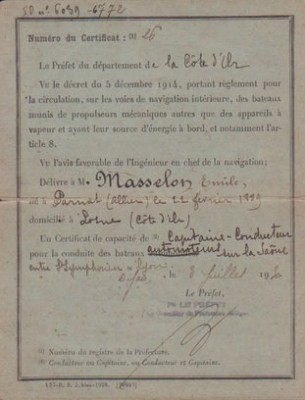 SD nº 5039 - 6772
Numéro du Certificat: (1) 26
Le Préfet du département de la Côte d'Or
Vu le décret du 5 décembre 1914, portant règlement
pour la circulation, sur les voies de navigation intérieure, des bateaux
munis de propulseurs mécaniques autres que des appareils à
vapeur et ayant leur source d'énergie à bord, et notamment l'ar
ticle 8.
Vu l'avis favorable de l'Ingénieur en chef de la navigation;
Délivre à M. Masselon Emile,
né à (Allier) le 22 février
domicilié à Losne (Côte d'Or)
Un Certificat de capacité de (2) Capitaine-Conducteur
pour la conduite des bateaux automoteurs sur la Saône
entre St Symphorien et Lyon
le 8 juillet
Le Préfet,
(1) Numéro du registre de la Préfecture.
(2) Conducteur ou Capitaine, ou Conducteur et Capitaine.